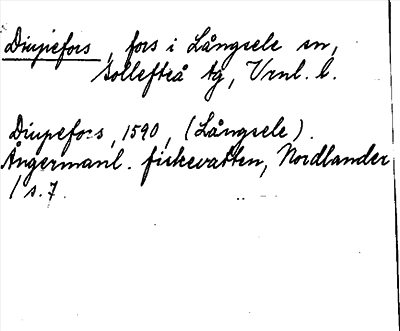 Diupefors, fors i Långsele sn,
Sollefteå tg, Vrnl. l.
Diupefors, 1590, (Långsele).
Ångermanl. fiskevatten, Nordlander
1 s. 7.